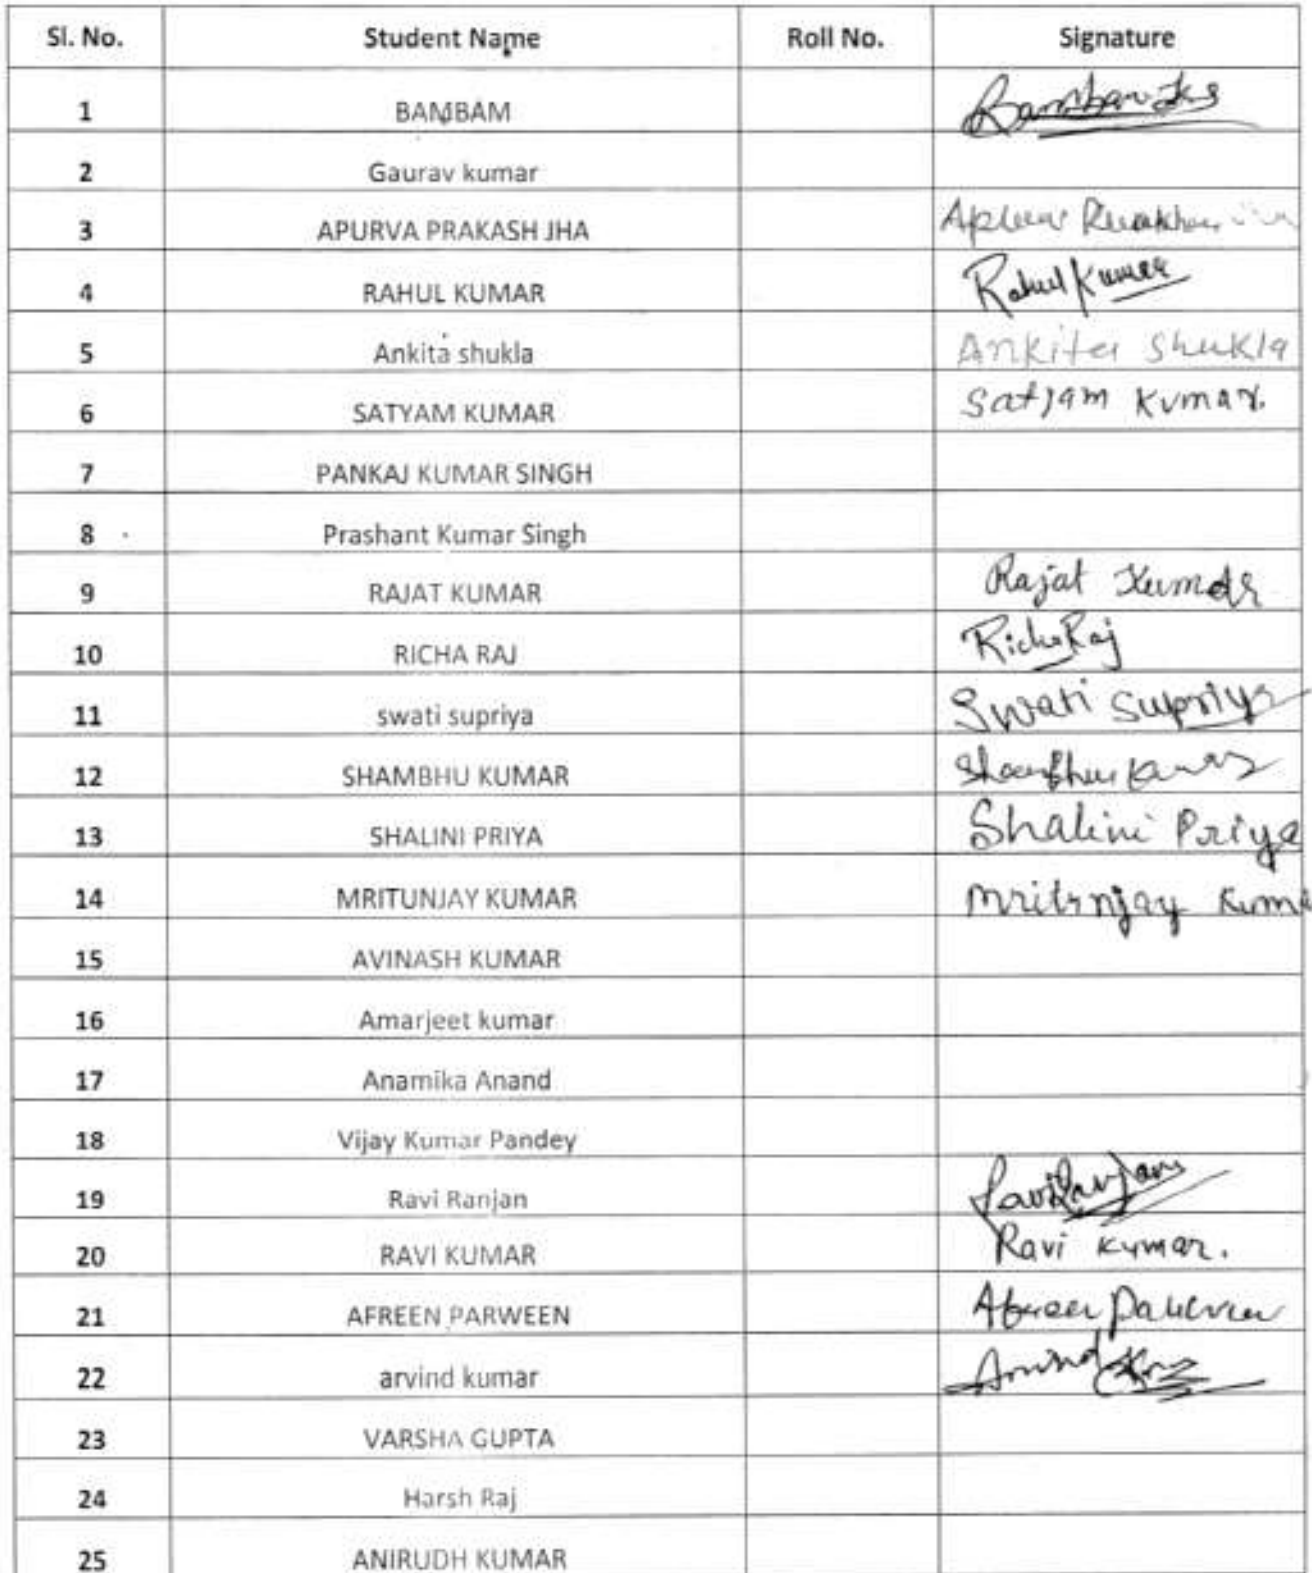 Sl. No. Student Name Roll No. Signature
1 BAMBAM
2 Gaurav kumar
3 APURVA PRAKASH JHA
4 RAHUL KUMAR Rahul Kumar
5 Ankita shukla Ankita Shukla
6 SATYAM KUMAR Satyam Kumar.
7 PANKAJ KUMAR SINGH
8 Prashant Kumar Singh
9 RAJAT KUMAR Rajat Kumar
10 RICHA RAJ Richa Raj
11 swati supriya Swati Supriya
12 SHAMBHU KUMAR Shambhu Kumar
13 SHALINI PRIYA Shalini Priya
14 MRITUNJAY KUMAR Mritunjay Kuma
15 AVINASH KUMAR
16 Amarjeet kumar
17 Anamika Anand
18 Vijay Kumar Pandey
19 Ravi Ranjan Ravi Ranjan
20 RAVI KUMAR Ravi Kumar.
21 AFREEN PARWEEN Afreen Parween
22 arvind kumar Arvind
23 VARSHA GUPTA
24 Harsh Raj
25 ANIRUDH KUMAR